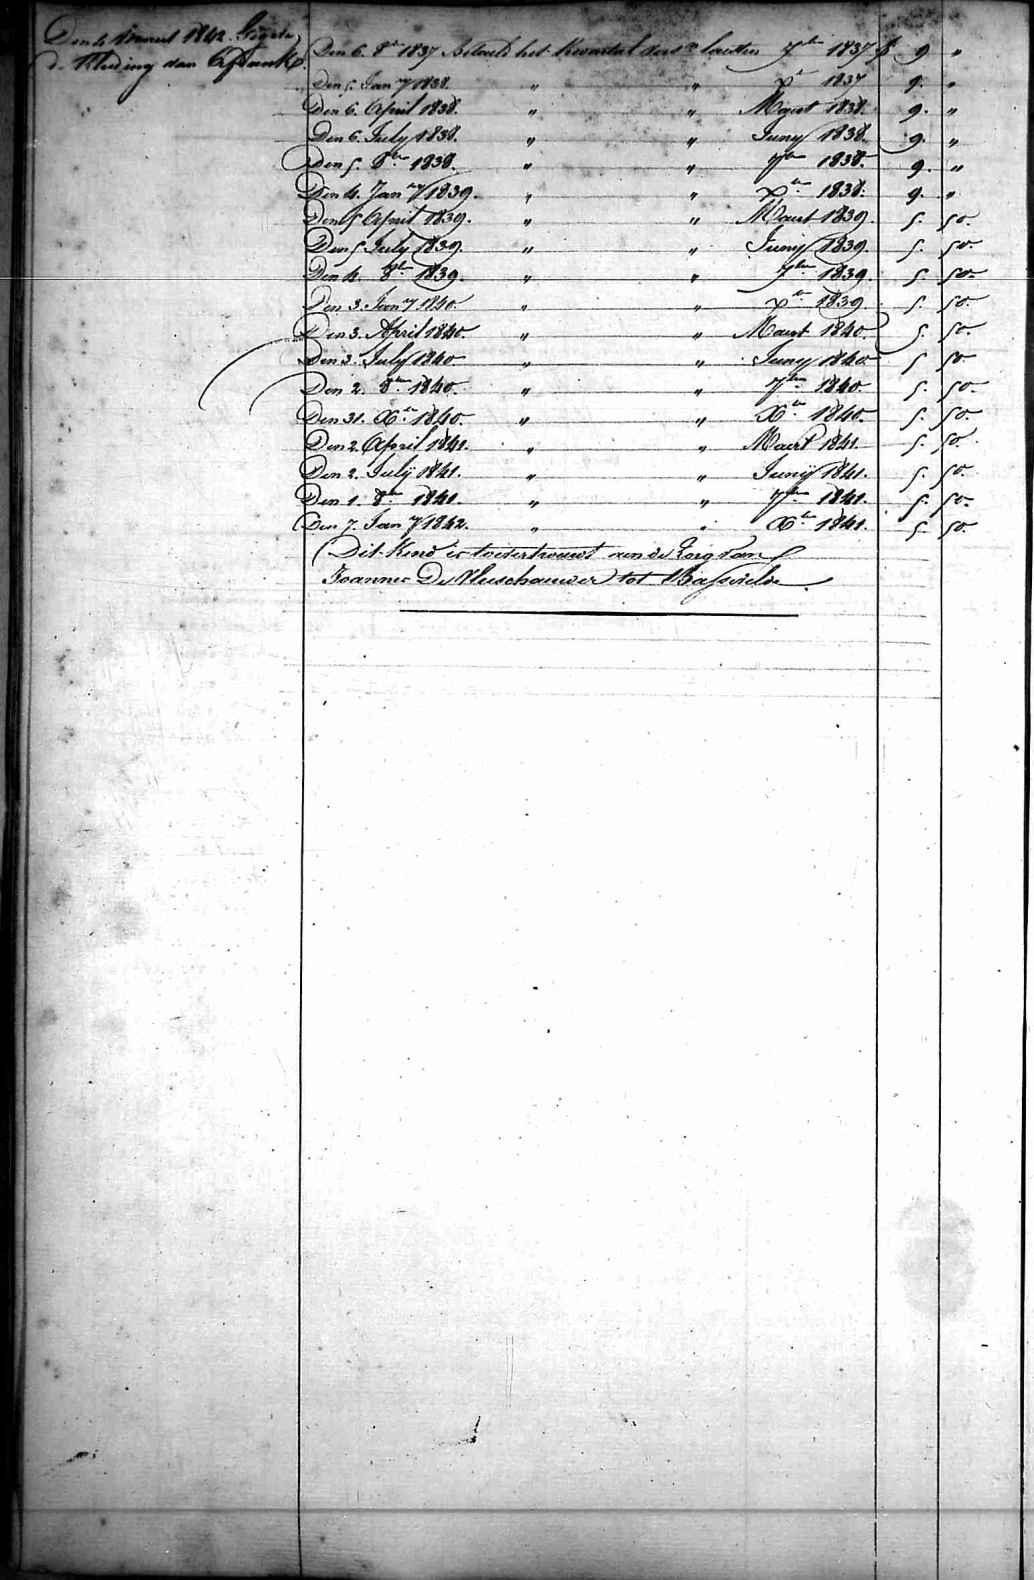 Den 4 Maart 1842.
de Kleding van
Den 6. 8br 1837 Betaald het Kwartal 7br 1837 f 9 "
Den 5. Jany 1838. " " Xr 1837 9. "
Den 6. April 1838. " " Maart 1838. 9. "
Den 6. July 1838. " " Juny 1838. 9. "
Den 5. 8br 1838. " " 7br 1838. 9. "
Den 4. Jany 1839. " " Xbr 1838. 9. "
Den 5 April 1839. " " Maart 1839. 5. 50.
Den 5 July 1839. " " Juny 1839. 5. 50.
Den 4. 8br 1839. " " 7br 1839. 5. 50.
Den 3. Jany 1840. " " Xr 1839 5. 50.
Den 3. April 1840. " " Maart 1840. 5. 50.
Den 3. July 1840 " " Juny 1840. 5 50
Den 2. 8br 1840. " " 7br 1840 5. 50.
Den 31. Xbr 1840. " " Xbr 1840. 5. 50.
Den 2. April 1841. " " Maert 1841. 5. 50.
Den 2. Julÿ 1841. " " Junÿ 1841. 5. 50.
Den 1. 8br 1841. " " 7br 1841. 5. 50.
Den 7. Jany 1842. " " Xbr 1841. 5. 50.
Dit Kind is toevertrouwt aen de Zorg van
Joannes De Vleeschauwer tot Bassevelde